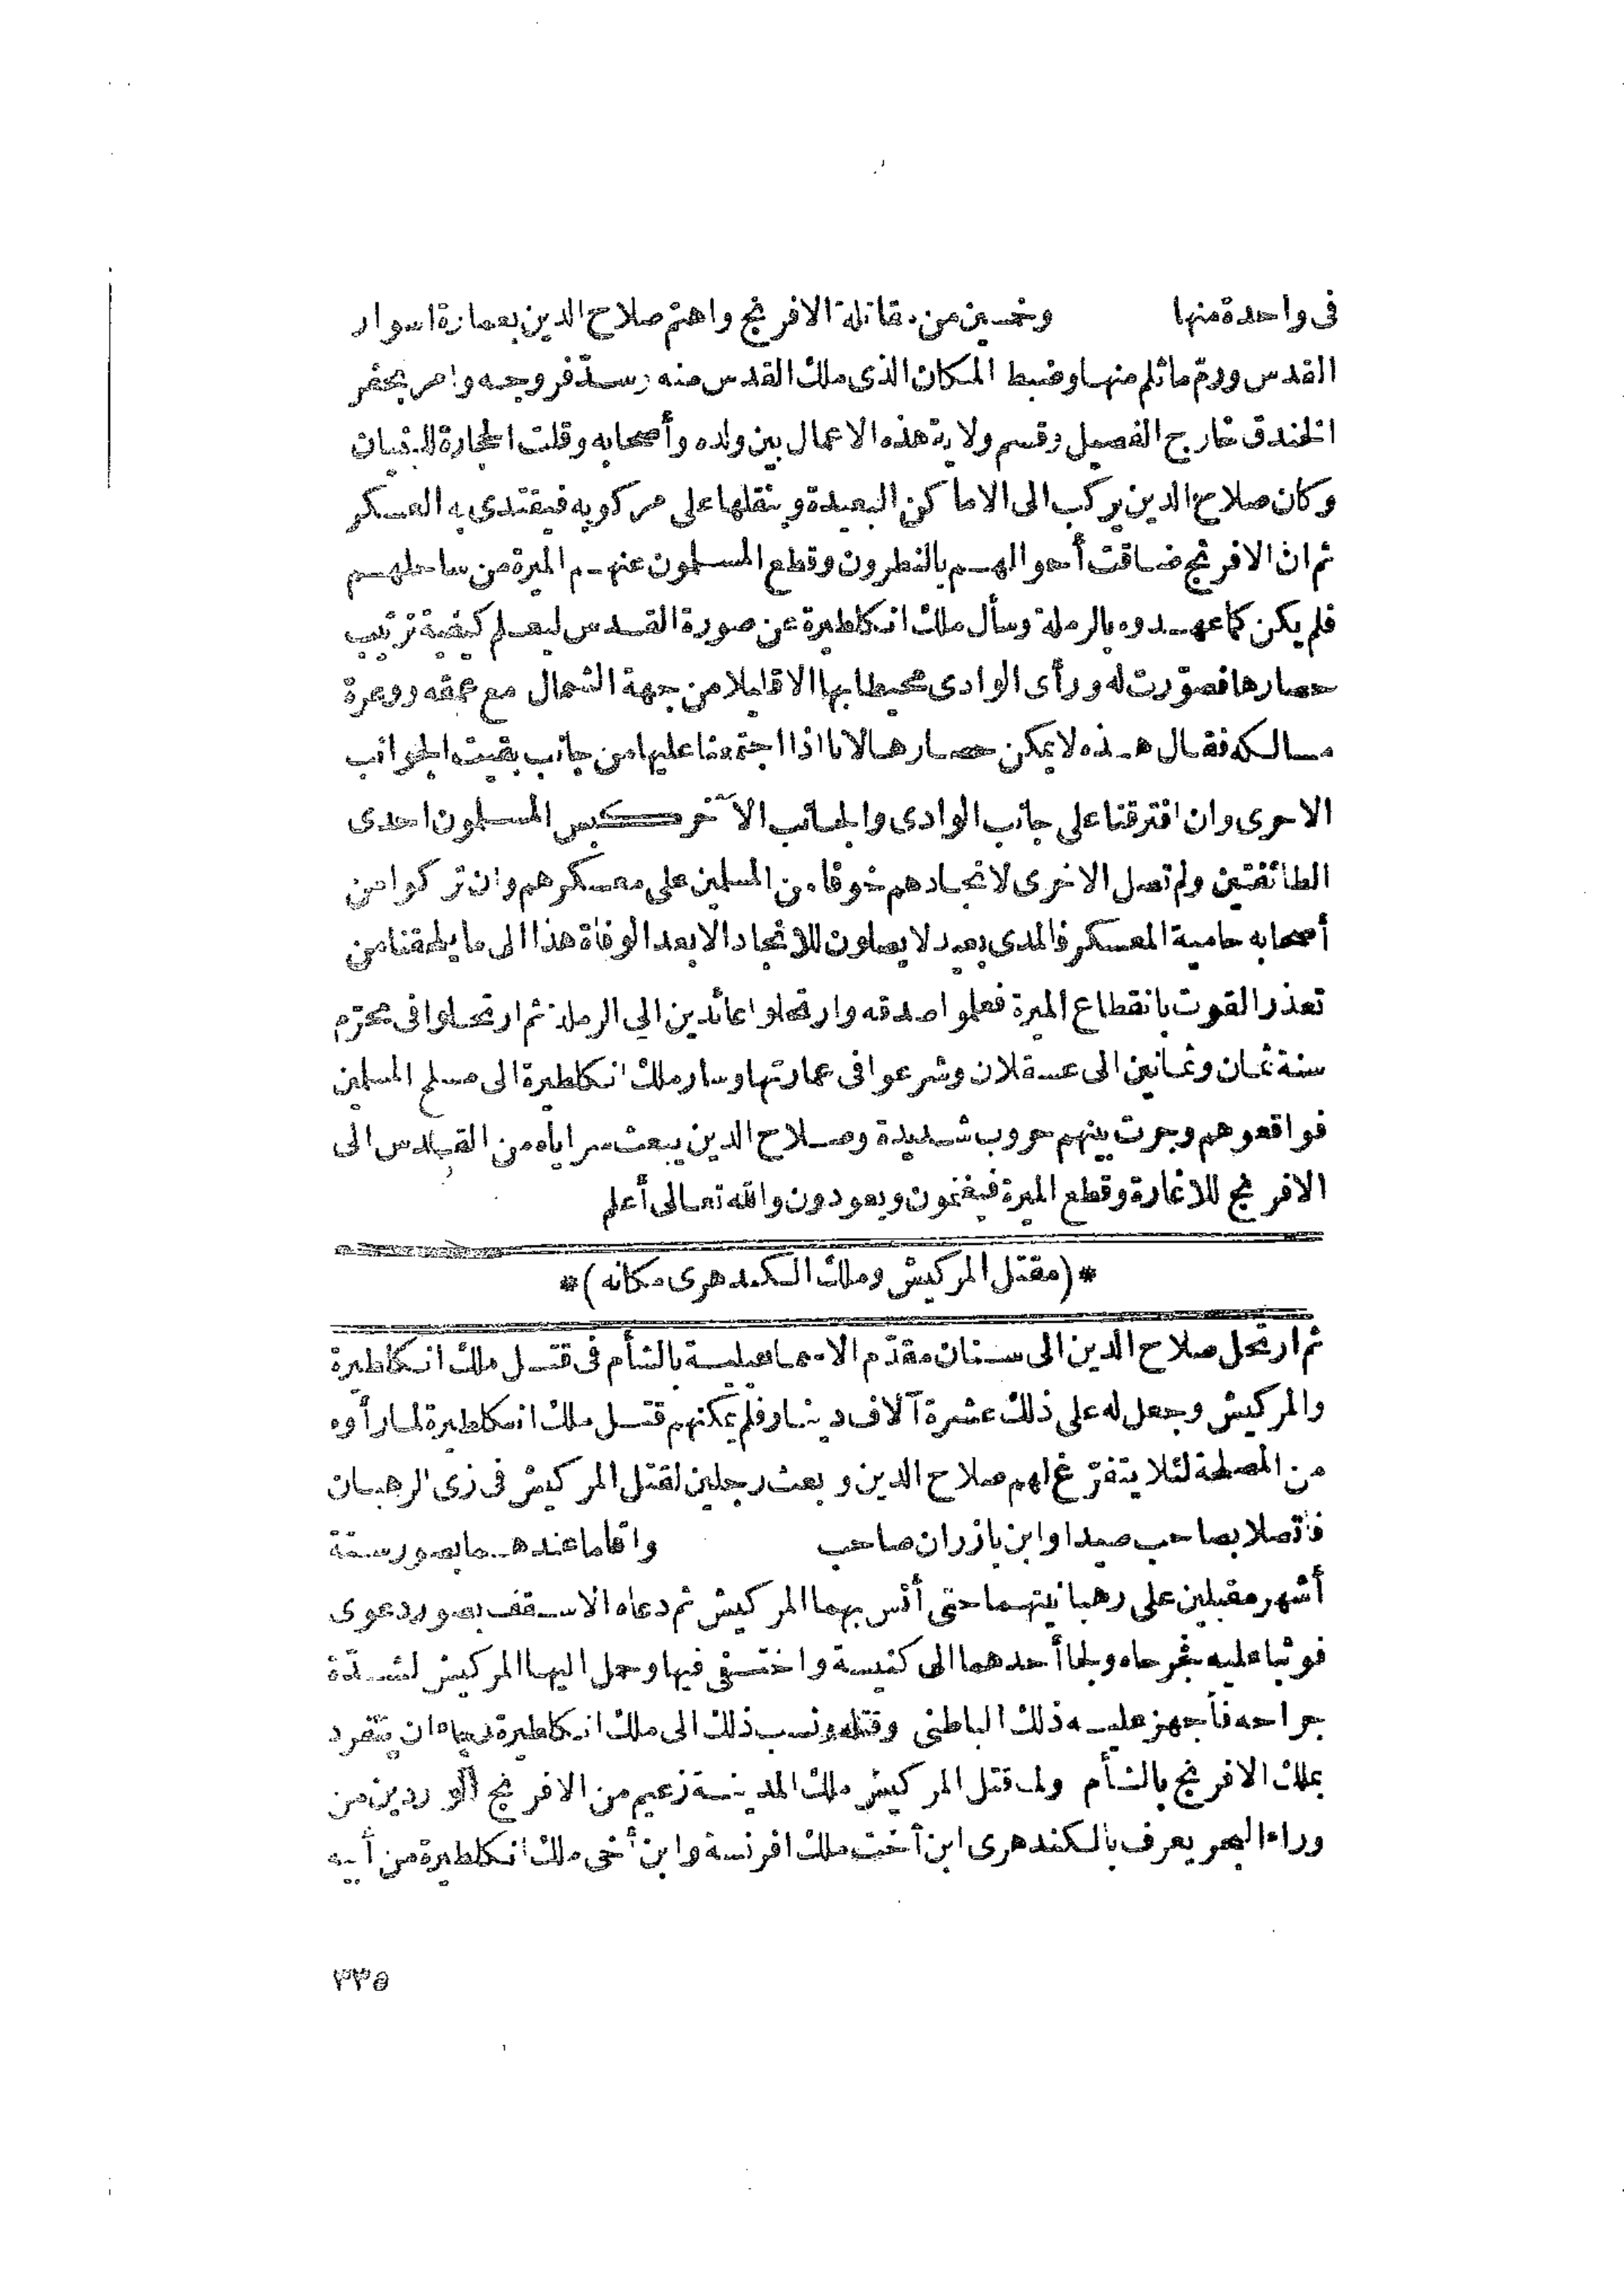 فى واحدة منها وخمسين من مقاتلة الافرنج واهتم صلاح الدين بعمارة اسوار
القدس ورم ما ثلم منها وضبط المكان الذى ملك القدس منه وسدّ فروجه وامر بحفر
الخندق خارج الفصيل وقسم ولاية هذه الاعمال بين ولده وأصحابه وقلت الحجارة للبنيان
وكان صلاح الدين يركب الى الاماكن البعيدة وينقلها على مركوبه فيقتدى به العسكر
ثم ان الافرنج ضاقت أحوالهم بالنطرون وقطع المسلمون عنهم الميرة من ساحلهم
فلم يكن كما عهدوه بالرملة وسأل ملك انكلطيرة عن صورة القدس ليعلم كيفية ترتيب
حصارها فصوّرت له ورأى الوادى محيطا بها الا قليلا من جهة الشمال مع عمقه ووعرة
مسالكه فقال هذه لا يمكن حصارها لانا اذا اجتمعنا عليها من جانب بقيت الجوانب
الاخرى وان افترقنا على جانب الوادى والجانب الآخر كبس المسلمون احدى
الطائفتين ولم تصل الاخرى لانجادهم خوفا من المسلمين على معسكرهم وان تركوا من
أصحابه حامية المعسكر فالمدى بعيد لا يصلون للانجاد الا بعد الوفاة هذا الى ما يلحقنا من
تعذر القوت بانقطاع الميرة فعلموا صدقه وارتحلوا عائدين الى الرملة ثم ارتحلوا فى محرّم
سنة ثمان وثمانين الى عسقلان وشرعوا فى عمارتها وسار ملك انكلطيرة الى مسلم المسلمين
فواقعوهم وجرت بينهم حروب شديدة وصلاح الدين يبعث سراياه من القدس الى
الافرنج للاغارة وقطع الميرة فيغنمون ويعودون والله تعالى أعلم
* (مقتل المركيش وملك الكندهرى مكانه) *
ثم ارتحل صلاح الدين الى سنان مقدّم الاسماعيلية بالشأم فى قتل ملك انكلطيرة
والمركيش وجعل له على ذلك عشرة آلاف دينار فلم يمكنهم قتل ملك انكلطيرة لما رأوه
من المصلحة لئلا يتفرّغ لهم صلاح الدين وبعث رجلين لقتل المركيش فى زى الرهبان
فاتصلا بصاحب صيدا وابن بازران صاحب واقاما عندهما بصور ستة
أشهر مقبلين على رهبانيتهما حتى أنس بهما المركيش ثم دعاه الاسقف بصور دعوى
فوثبا عليه فجرحاه ولجأ أحدهما الى كنيسة واختفى فيها وحمل اليها المركيش لشدّة
جراحه فأجهز عليه ذلك الباطنى وقتله ونسب ذلك الى ملك انكلطيرة رجاء ان ينفرد
بملك الافرنج بالشأم ولما قتل المركيش ملك المدينة زعيم من الافرنج الواردين من
وراء البحر يعرف بالكندهرى ابن أخت ملك افرنسة وابن أخى ملك انكلطيرة من أبيه
٣٣٥